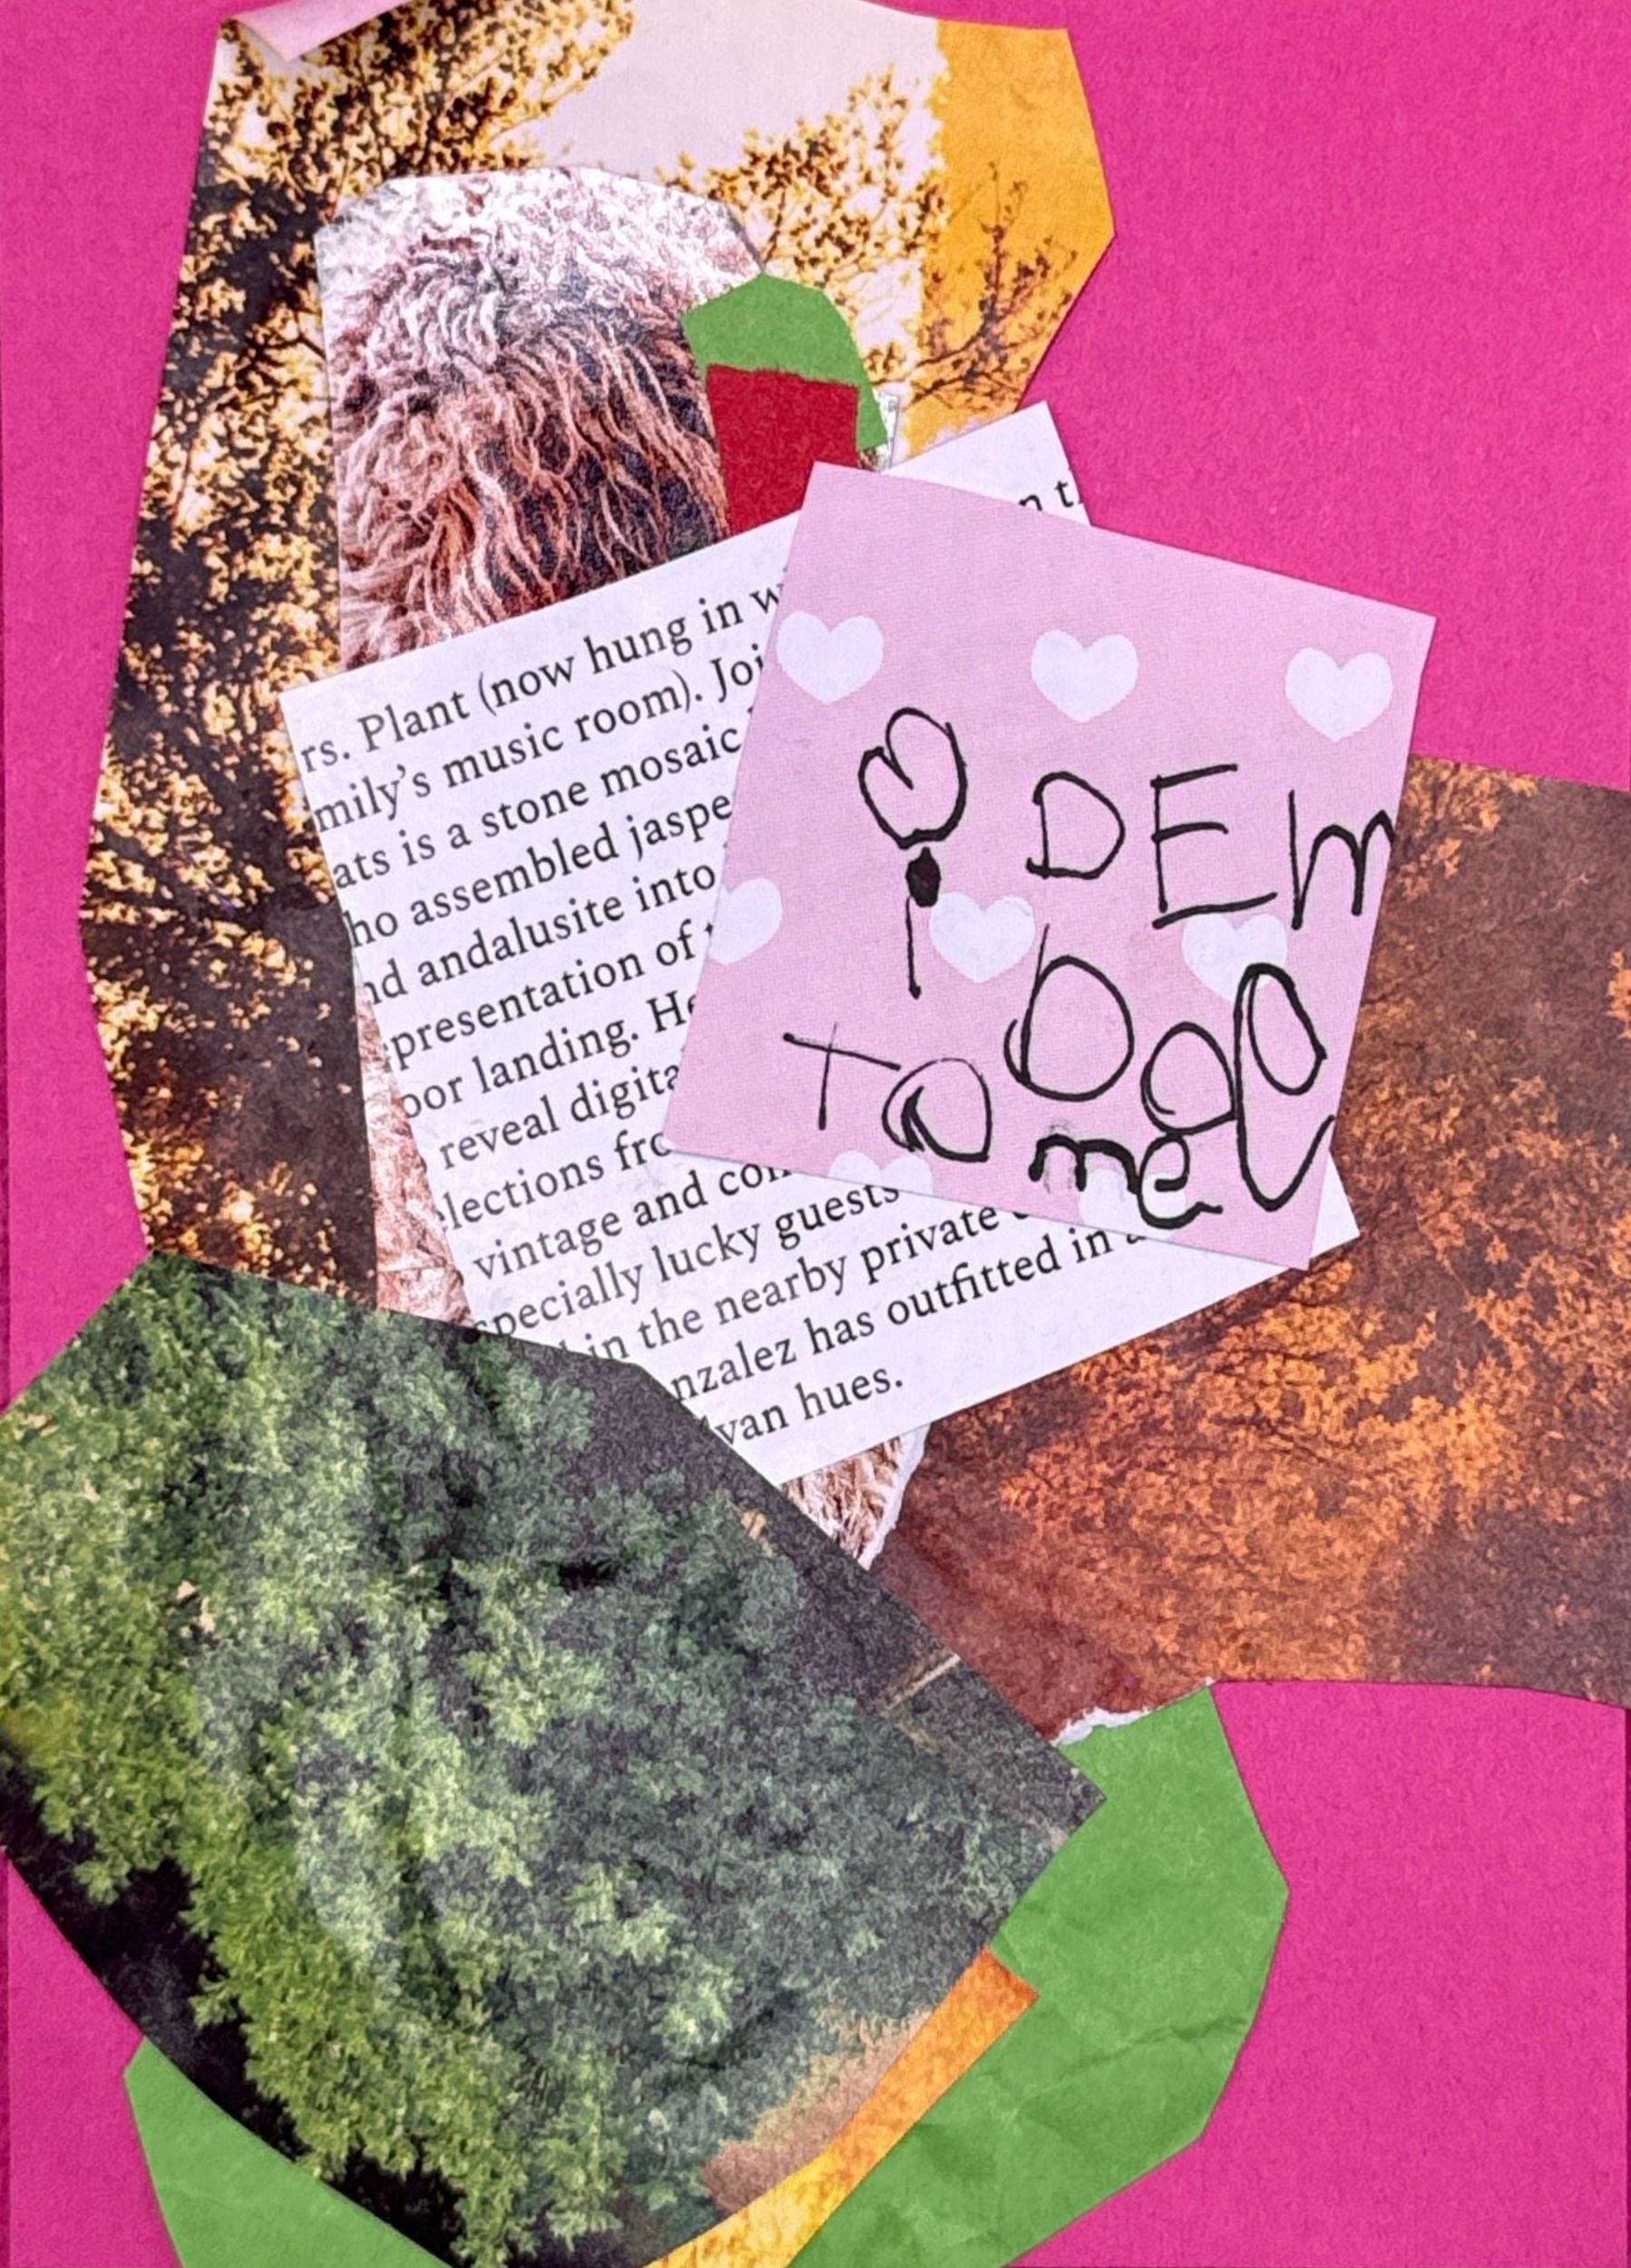 n t
rs. Plant (now hung in w
mily’s music room). Joi
ats is a stone mosaic
ho assembled jaspe
nd andalusite into
presentation of
oor landing. He
reveal digita
lections fro
vintage and con
specially lucky guests
in the nearby private
nzalez has outfitted in a
van hues.
i DEm
to
me